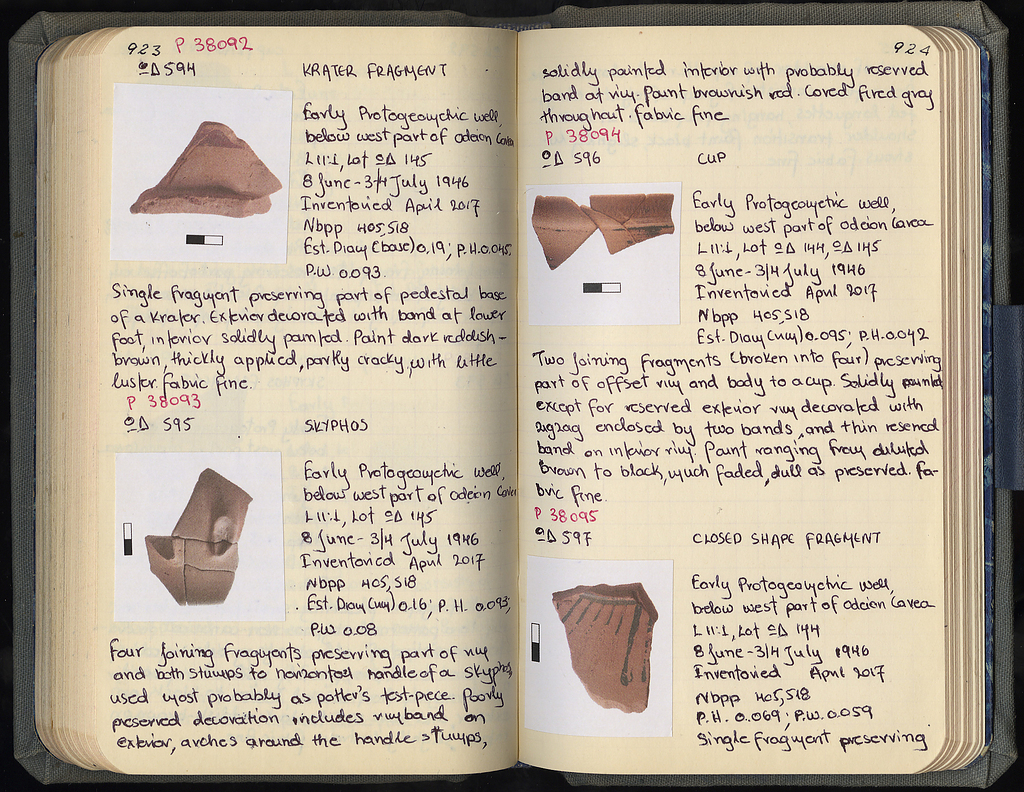 923 P 38092
ΩΔ 594 KRATER FRAGMENT
Early Protogeometric well,
below west part of odeion Cavea
L 11:1, Lot ΩΔ 145
8 June - 3/4 July 1946
Inventoried April 2017
Nbpp 405, 518
Est. Diam (base) 0.19; P.H. 0.045;
P.W. 0.093.
Single fragment preserving part of pedestal base
of a krater. Exterior decorated with band at lower
foot, interior solidly painted. Paint dark reddish-
brown, thickly applied, partly cracky, with little
luster. Fabric fine.
P 38093
ΩΔ 595 SKYPHOS
Early Protogeometric well,
below west part of odeion Cavea
L 11:1, Lot ΩΔ 145
8 June - 3/4 July 1946
Inventoried April 2017
Nbpp 405, 518
Est. Diam (rim) 0.16; P.H. 0.093;
P.W. 0.08
Four joining fragments preserving part of rim
and both stumps to horizontal handle of a skyphos,
used most probably as potter's test-piece. Poorly
preserved decoration includes rim band on
exterior, arches around the handle stumps,
924
solidly painted interior with probably reserved
band at rim. Paint brownish red. Cored fired gray
throughout. Fabric fine
P 38094
ΩΔ 596 CUP
Early Protogeometric well,
below west part of odeion Cavea
L 11:1, Lot ΩΔ 144, ΩΔ 145
8 June - 3/4 July 1946
Inventoried April 2017
Nbpp 405, 518
Est. Diam (rim) 0.095; P.H. 0.042
Two joining fragments (broken into four) preserving
part of offset rim and body to a cup. Solidly painted
except for reserved exterior rim decorated with
zigzag enclosed by two bands, and thin reserved
band on interior rim. Paint ranging from diluted
brown to black, much faded, dull as preserved. Fa-
bric fine.
P 38095
ΩΔ 597 CLOSED SHAPE FRAGMENT
Early Protogeometric well,
below west part of odeion Cavea
L 11:1, Lot ΩΔ 144
8 June - 3/4 July 1946
Inventoried April 2017
Nbpp 405, 518
P.H. 0.069; P.W. 0.059
Single fragment preserving